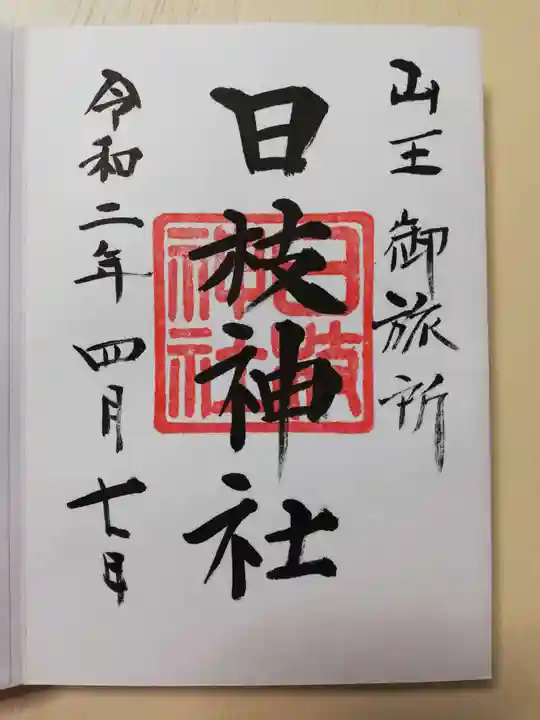 山王御旅所
日枝神社
日枝神社
令和二年四月七日